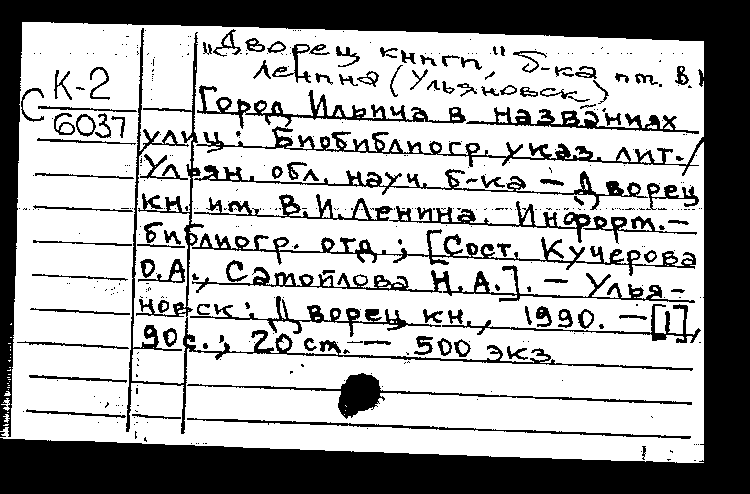 „Дворец книги," б-ка им. В.
Ленина (Ульяновск)
С К-2
6037
Город Ильича в названиях
улиц: Биобиблиогр. указ. лит./
Ульян. обл. науч. б-ка — Дворец
кн. им. В.И.Ленина. Информ.-
библиогр. отд.; [Сост. Кучерова
О.А., Самойлова Н.А.]. — Улья-
новск: Дворец кн., 1990. — [1],
90с.; 20 см. — 500 экз.